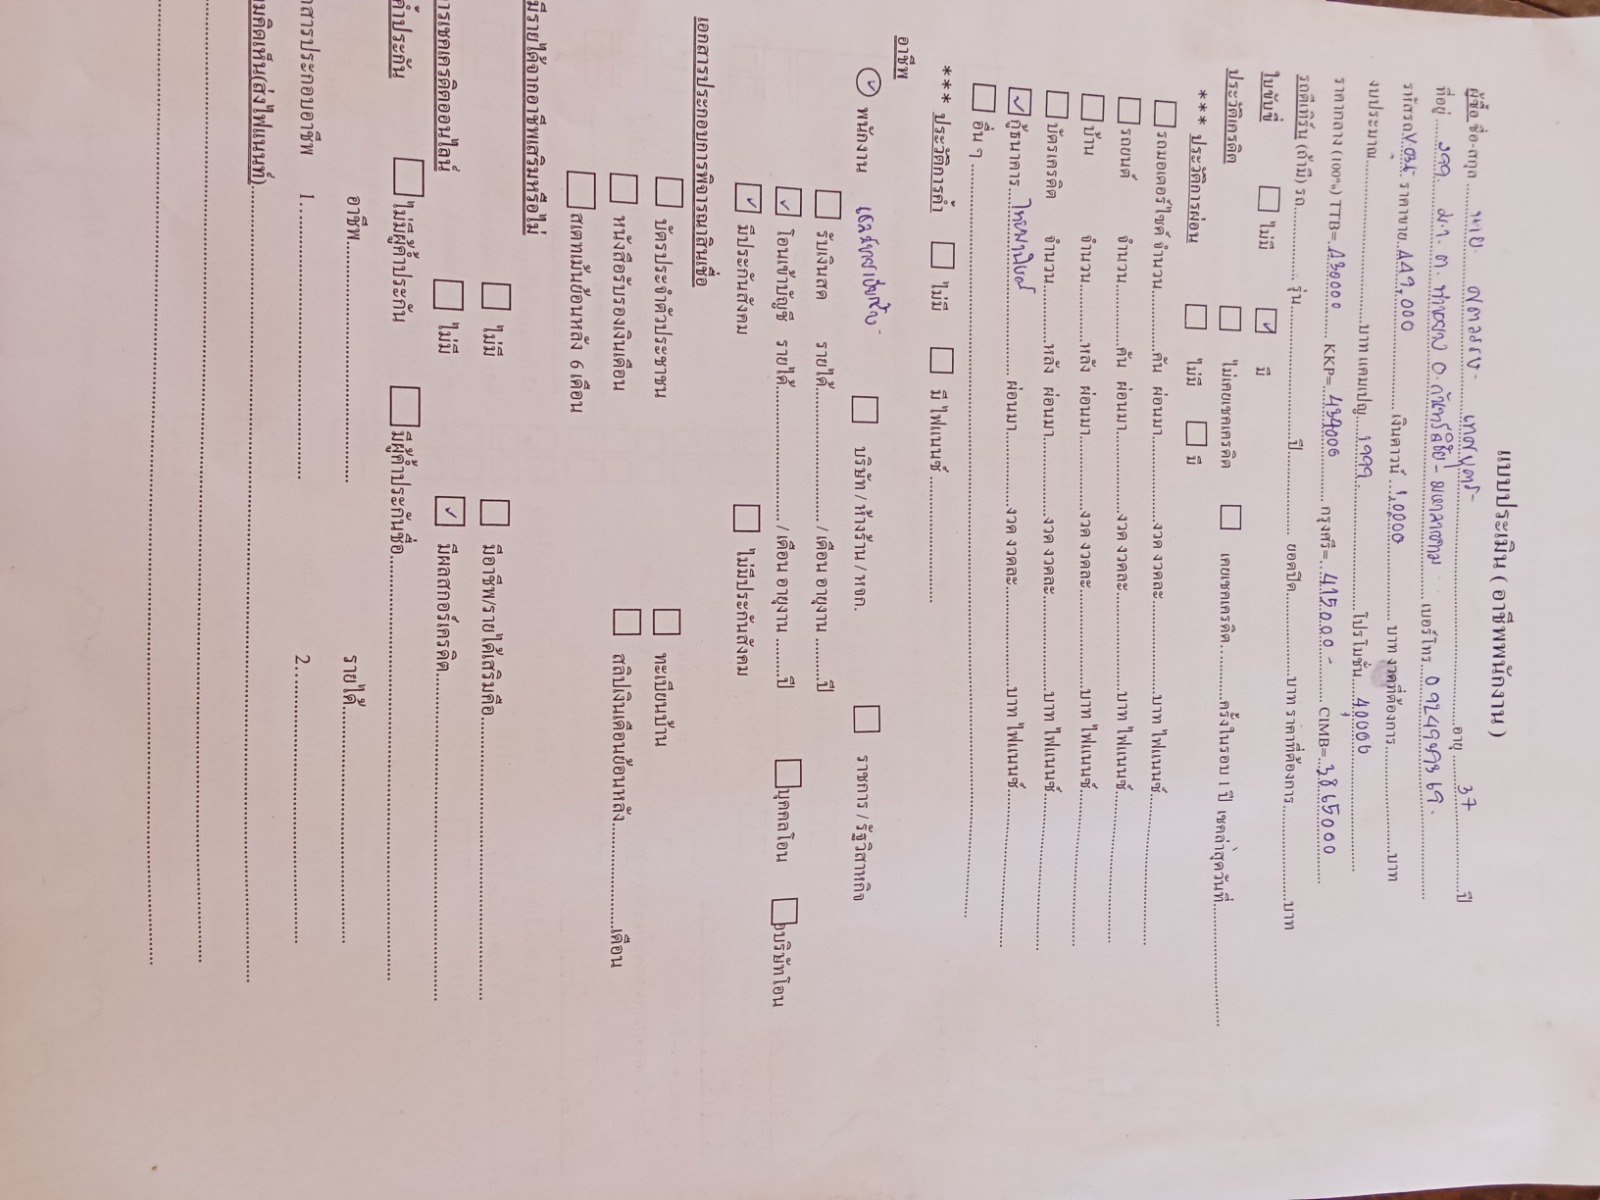 แบบประเมิน ( อาชีพพนักงาน )
ผู้ซื้อ ชื่อ-สกุล ..... นาย ..... อายุ ..... 37 ..... ปี
ที่อยู่ ..... ม.1 ต. ..... อ. กันทรวิชัย - มหาสารคาม ..... เบอร์โทร..
รหัสรถ ..... ราคาขาย..449,000..... เงินดาวน์ ..... บาท งวดที่ต้องการ..... บาท
งบประมาณ..... บาท แคมเปญ.. 1999 ..... โปรโมชั่น.... 40000
ราคากลาง (100%) TTB=..430000..... KKP=..439000..... กรุงศรี=..415000 -..... CIMB=..3865000
รถตีเทิร์น (ถ้ามี) รถ..... รุ่น..... ปี..... ยอดปิด..... บาท ราคาที่ต้องการ..... บาท
ใบขับขี่ ☐ ไม่มี ☑ มี
ประวัติเครดิต ☐ ไม่เคยเชคเครดิต ☐ เคยเชคเครดิต..... ครั้งในรอบ 1 ปี เชคล่าสุดวันที่.....
*** ประวัติการผ่อน ☐ ไม่มี ☐ มี
☐ รถมอเตอร์ไซค์ จำนวน..... คัน ผ่อนมา..... งวด งวดละ..... บาท ไฟแนนซ์.....
☐ รถยนต์ จำนวน..... คัน ผ่อนมา..... งวด งวดละ..... บาท ไฟแนนซ์.....
☐ บ้าน จำนวน..... หลัง ผ่อนมา..... งวด งวดละ..... บาท ไฟแนนซ์.....
☐ บัตรเครดิต จำนวน..... หลัง ผ่อนมา..... งวด งวดละ..... บาท ไฟแนนซ์.....
☑ กู้ธนาคาร.. ไทยพาณิชย์ ..... ผ่อนมา..... งวด งวดละ..... บาท ไฟแนนซ์.....
☐ อื่น ๆ .....
*** ประวัติการค้ำ ☐ ไม่มี ☐ มี ไฟแนนซ์ .....
อาชีพ
☑ พนักงาน ☐ บริษัท / ห้างร้าน / หจก. ☐ ราชการ / รัฐวิสาหกิจ
☐ รับเงินสด รายได้..... / เดือน อายุงาน .....ปี
☑ โอนเข้าบัญชี รายได้..... / เดือน อายุงาน .....ปี ☐ บุคคลโอน ☐ บริษัทโอน
☑ มีประกันสังคม ☐ ไม่มีประกันสังคม
เอกสารประกอบการพิจารณาสินเชื่อ
☐ บัตรประจำตัวประชาชน ☐ ทะเบียนบ้าน
☐ หนังสือรับรองเงินเดือน ☐ สลิปเงินเดือนย้อนหลัง..... เดือน
☐ สเตทเม้นย้อนหลัง 6 เดือน
มีรายได้จากอาชีพเสริมหรือไม่
☐ ไม่มี ☐ มีอาชีพ/รายได้เสริมคือ.....
ารเชคเครดิตออนไลน์ ☐ ไม่มี ☑ มีผลสกอร์เครดิต.....
ค้ำประกัน ☐ ไม่มีผู้ค้ำประกัน ☐ มีผู้ค้ำประกันชื่อ.....
อาชีพ..... รายได้.....
กสารประกอบอาชีพ 1..... 2.....
มคิดเห็น(ส่งไฟแนนท์).....